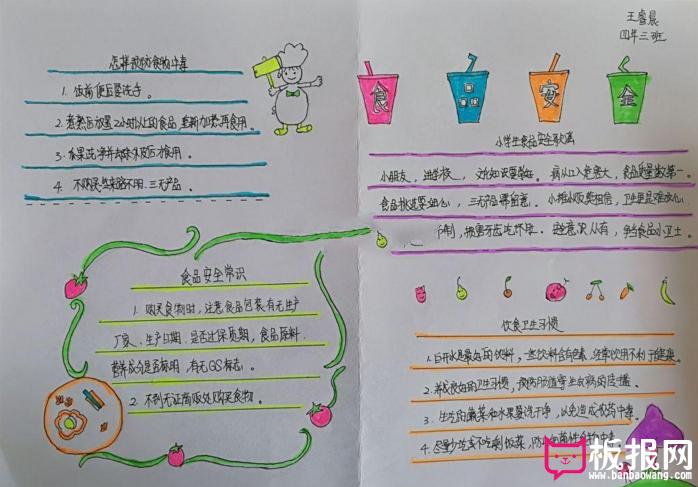 王睿晨
四年三班
怎样预防食物中毒
1. 饭前便后要洗手。
2. 煮熟后放置2小时以上的食品,重新加热再食用。
3. 水果洗净并去除外皮后才食用。
4. 不购买来路不明、三无产品。
食品安全
小学生食品安全歌
小朋友,进学校,
病从口入危害大,食品质量数第一。
食品挑选要细心,三无产品
小摊小贩莫相信,卫生
损害牙齿
争当食品小卫士。
食品安全常识
1. 购买食物时,注意食品包装有无生产
厂家、生产日期,是否过保质期,食品原料、
营养成分是否标明,有无QS标志。
2. 不到无证商贩处购买食物。
饮食卫生习惯
1. 白开水是最好的饮料,一些饮料含有色素,经常饮用不利于健康
2. 养成良好的卫生习惯,预防肠道寄生虫病的传播
3. 生吃的蔬菜和水果要洗干净,以免造成农药中毒
4. 尽量少吃或不吃剩饭菜,防止细菌性食物中毒
板报网
www.banbaowang.com